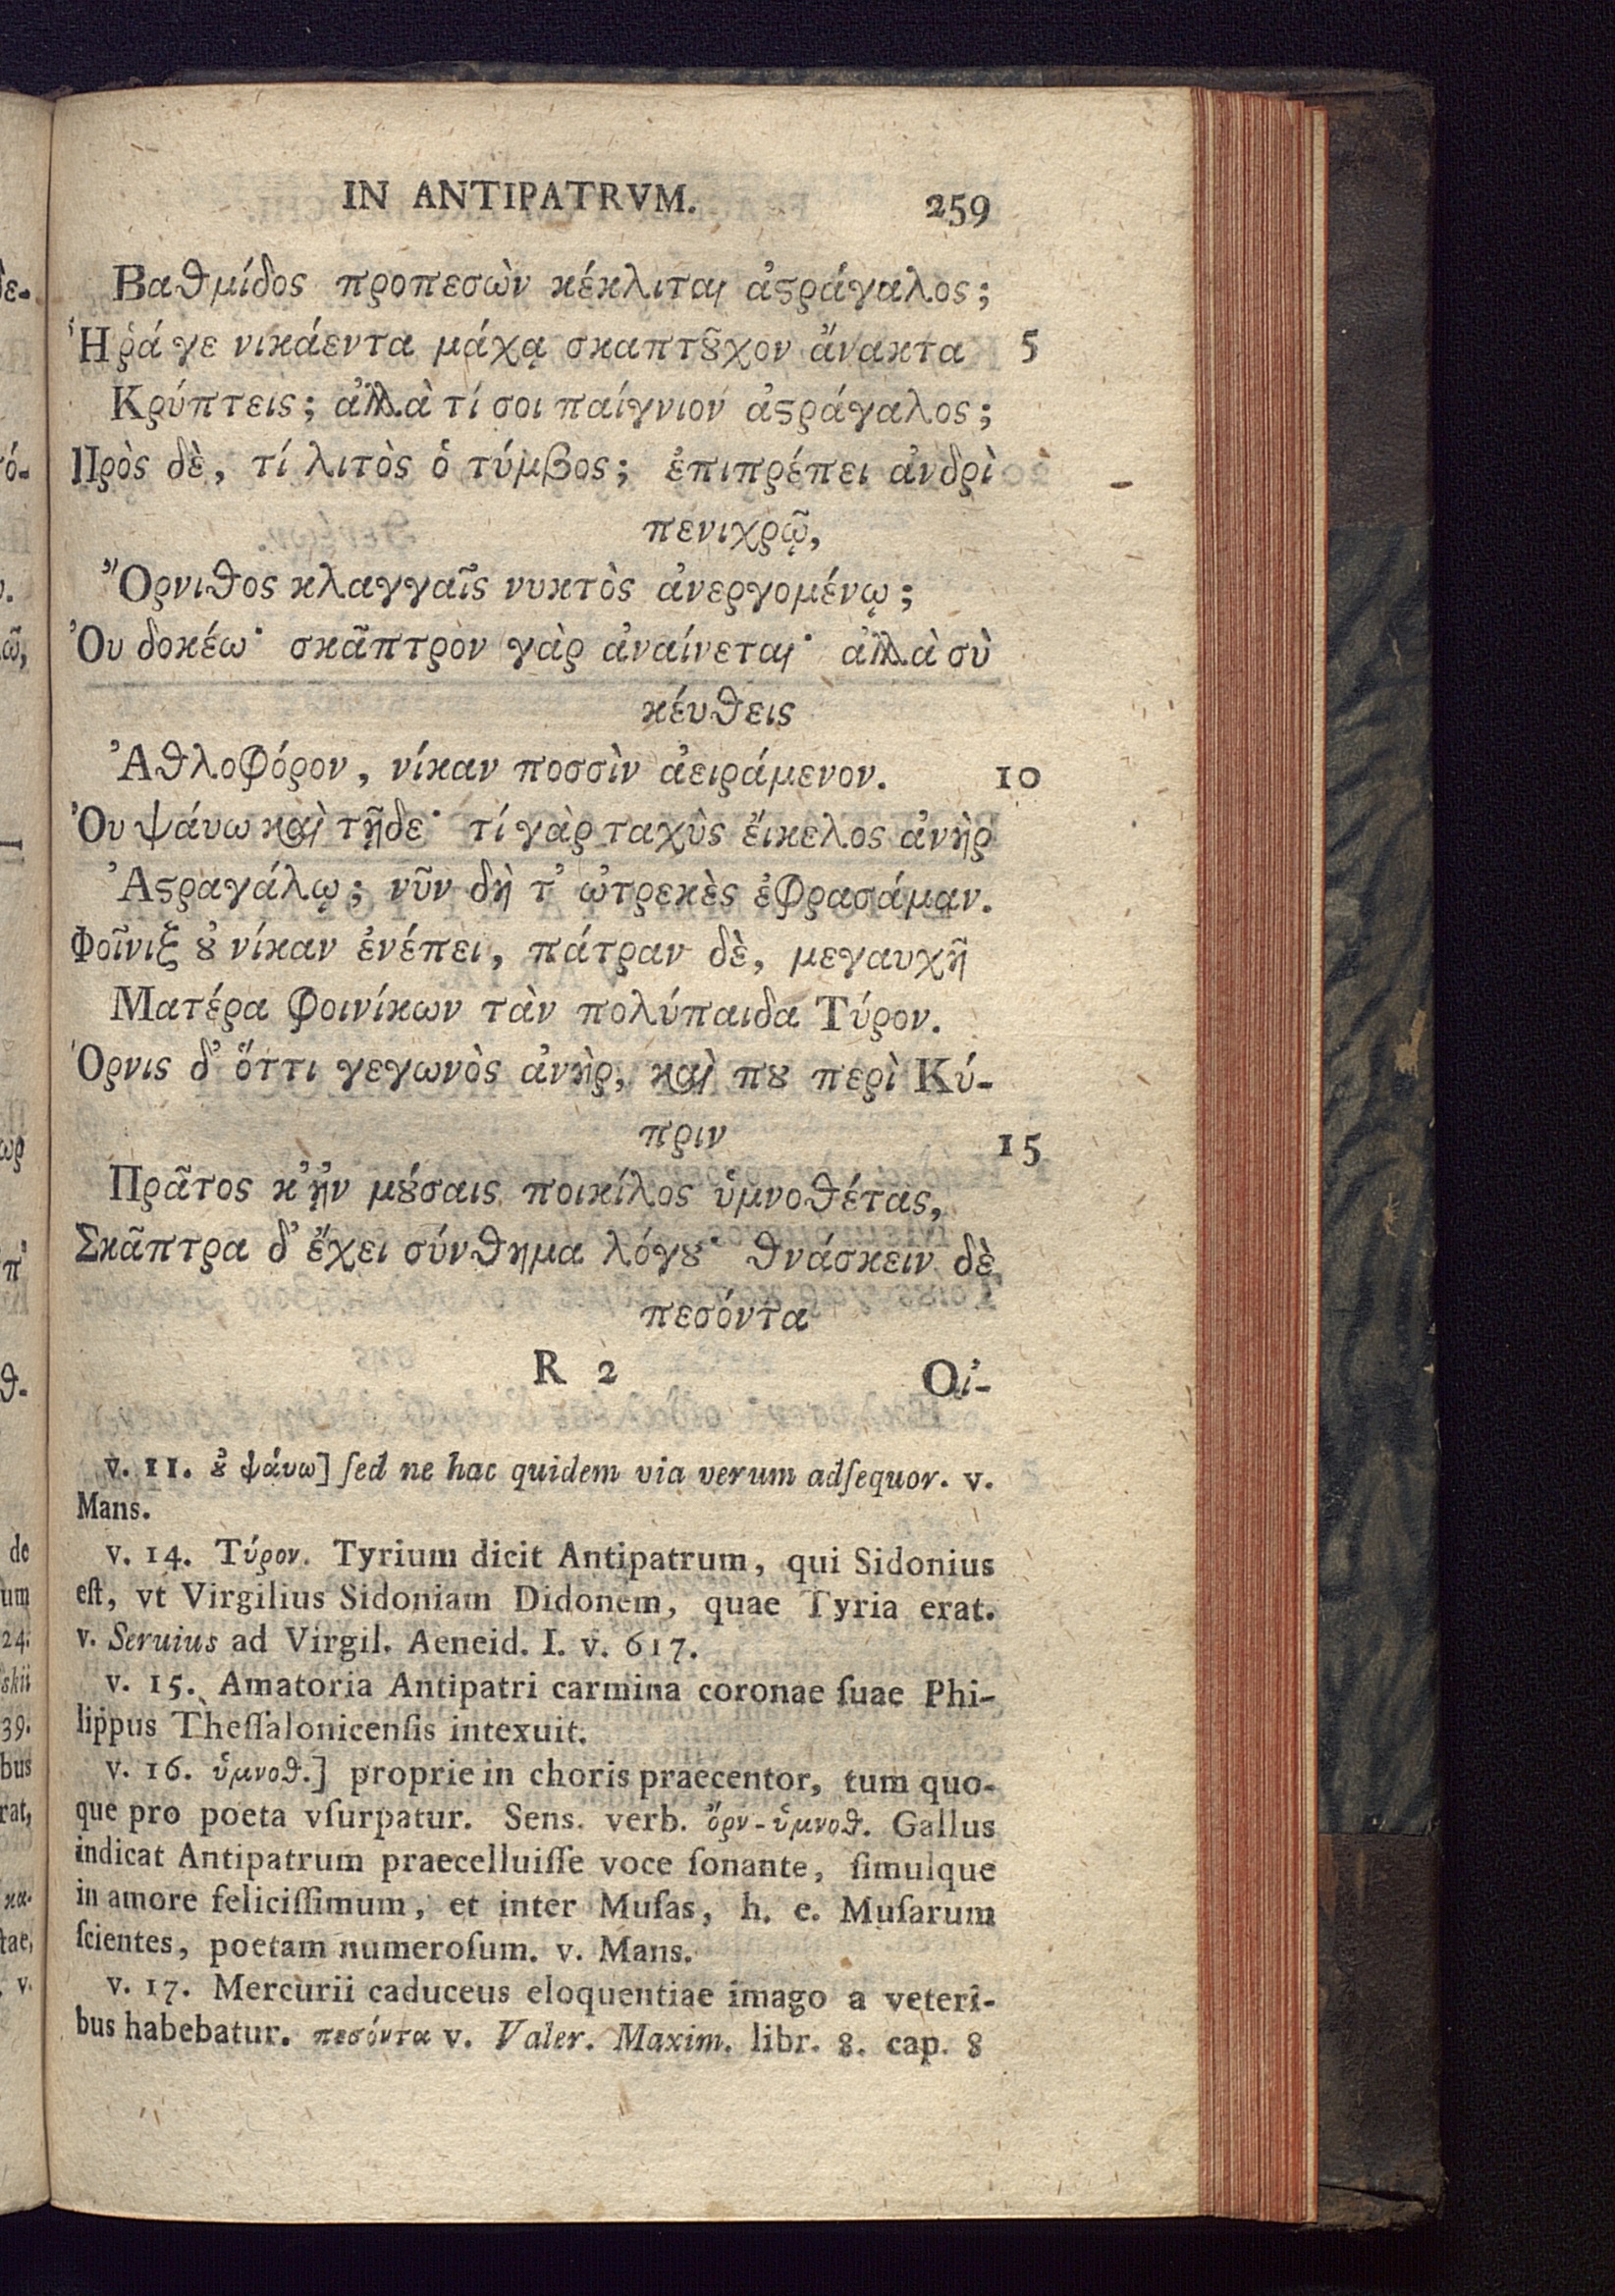 IN ANTIPATRVM. 259
Βαθμίδος προπεσὼν κέκλιται ἀϛράγαλος;
Ἡ ῥά γε νικάεντα μάχᾳ σκαπτȣ͂χον ἄνακτα 5
Κρύπτεις; ἀλλὰ τί σοι παίγνιον ἀϛράγαλος;
Πρὸς δὲ, τί λιτὸς ὁ τύμβος; ἐπιπρέπει ἀνδρὶ
πενιχρῷ,
Ὄρνιθος κλαγγαῖς νυκτὸς ἀνεργομένῳ;
Ὀυ δοκέω· σκᾶπτρον γὰρ ἀναίνεται· ἀλλὰ σὺ
κέυθεις
Ἀθλοφόρον, νίκαν ποσσὶν ἀειράμενον. 10
Ὀυ ψάυω καὶ τῇδε· τί γὰρ ταχὺς ἔικελος ἀνὴρ
Ἀϛραγάλῳ; νῦν δὴ τ' ὠτρεκὲς ἐφρασάμαν.
Φοῖνιξ ȣ̓ νίκαν ἐνέπει, πάτραν δὲ, μεγαυχῆ
Ματέρα φοινίκων τὰν πολύπαιδα Τύρον.
Ὄρνις δ' ὅττι γεγωνὸς ἀνὴρ, καὶ πȣ περὶ Κύ-
πριν 15
Πρᾶτος κ' ἦν μȣ́σαις ποικίλος ὑμνοθέτας,
Σκᾶπτρα δ' ἔχει σύνθημα λόγȣ· θνάσκειν δὲ
πεσόντα
R 2 Οἰ-
v. 11. ȣ̓ ψάυω] ſed ne hac quidem via verum adſequor. v.
Mans.
v. 14. Τύρον. Tyrium dicit Antipatrum, qui Sidonius
eſt, vt Virgilius Sidoniam Didonem, quae Tyria erat.
v. Seruius ad Virgil. Aeneid. I. v. 617.
v. 15. Amatoria Antipatri carmina coronae ſuae Phi-
lippus Theſſalonicenſis intexuit.
v. 16. ὑμνοθ.] proprie in choris praecentor, tum quo-
que pro poeta vſurpatur. Sens. verb. ὄρν-ὑμνοθ. Gallus
indicat Antipatrum praecelluiſſe voce ſonante, ſimulque
in amore feliciſſimum, et inter Muſas, h. e. Muſarum
ſcientes, poetam numeroſum. v. Mans.
v. 17. Mercurii caduceus eloquentiae imago a veteri-
bus habebatur. πεσόντα v. Valer. Maxim. libr. 8. cap. 8